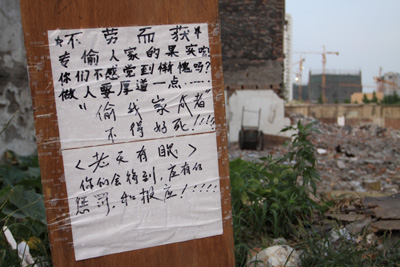 *不劳而获*
专偷人家的果实啦
你们不感觉到惭愧吗?
做人要厚道一点......
"偷我家成者"
不得好死!!!
<老天有眼>
你们会得到，应有的
惩罚，和报应!!!!